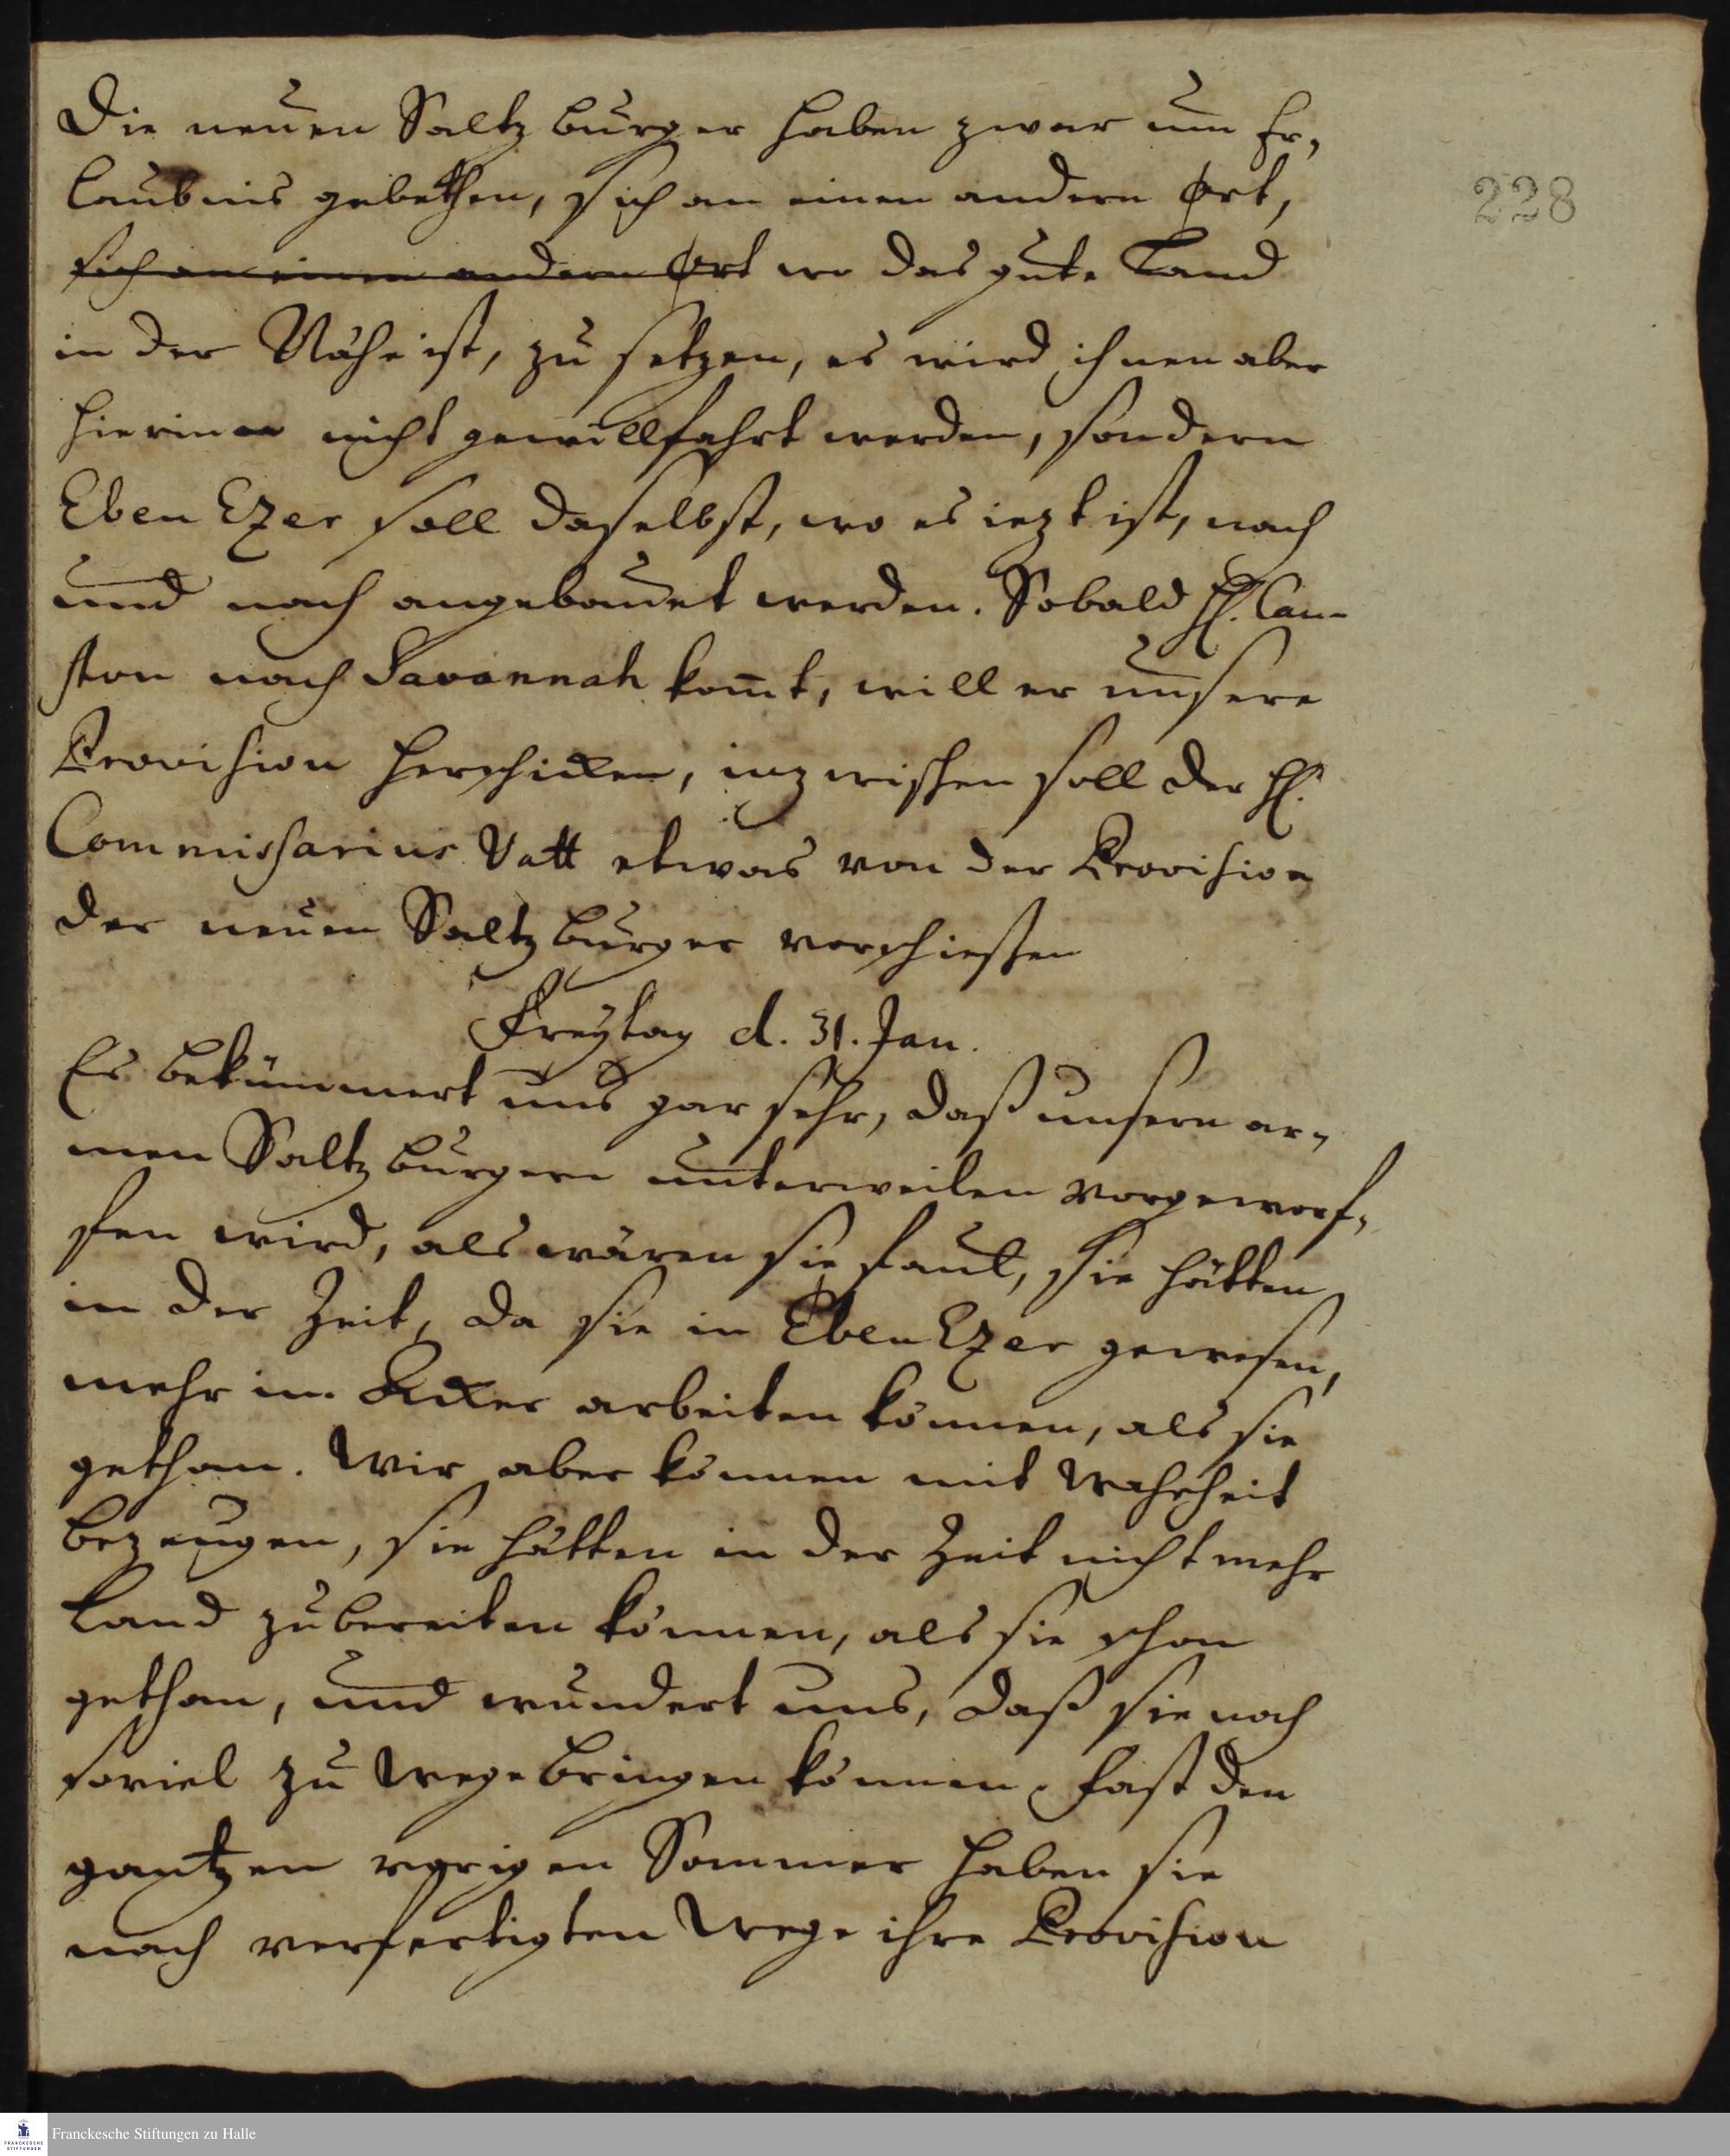 Die neuen Saltzburger haben zwar um Er-
laubnis gebethen, sich an einen andern Ort,
228
sich an einen andern Ort wo das gute Land
in der Nähe ist, zu setzen, es wird ihnen aber
hierinne nicht gewillfahrt werden, sondern
Eben Ezer soll daselbst, wo es iezt ist, nach
und nach angebauet werden. Sobald H. Cau-
ston nach Savannah kom̄t, will er unsere
Provision herschicken, inzwischen soll der H.
Commissarius Vatt etwas von der Provision
der neuen Saltzburger vorschiessen
Freytag d. 31. Jan.
Es bekümmert uns gar sehr, daß unsern ar-
men Saltzburgern unterweilen vorgeworf-
fen wird, als wären sie faul, sie hätten
in der Zeit, da sie in Eben Ezer gewesen,
mehr im Acker arbeiten können, als sie
gethan. Wir aber können mit Wahrheit
bezeugen, sie hätten in der Zeit nicht mehr
Land zubereiten können, als sie schon
gethan, und wundert uns, daß sie noch
soviel zu Wege bringen können. Fast den
gantzen vorigen Sommer haben sie
nach verfertigten Wege ihre Provision
FRANCKESCHE STIFTUNGEN
Franckesche Stiftungen zu Halle